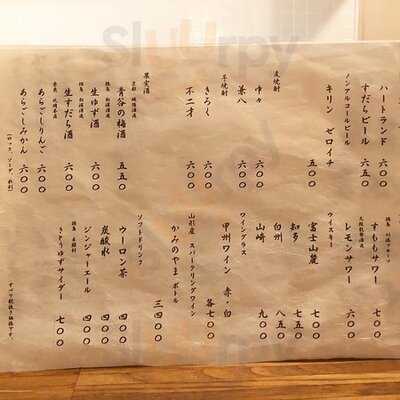 ハートランド 六〇〇
すだちビール 六五〇
ノンアルコールビール
キリン ゼロイチ 五〇〇
麦焼酎
中々 六〇〇
兼八 六〇〇
芋焼酎
きろく 六〇〇
不二才 六〇〇
果実酒
青谷の梅酒 五五〇
生ゆず酒 六〇〇
生すだち酒 六〇〇
あらごしりんご 六〇〇
あらごしみかん 六〇〇
(ロック、ソーダ、水割)
すももサワー 七〇〇
レモンサワー 六〇〇
ウイスキー
富士山麓 七〇〇
知多 七五〇
白州 八五〇
山崎 九〇〇
ワイングラス
甲州ワイン 赤・白 各七〇〇
山形産 スパークリングワイン
かみのやま ボトル 三四〇〇
ソフトドリンク
ウーロン茶 四〇〇
炭酸水 四〇〇
ジンジャーエール 四〇〇
きとうゆずサイダー 七〇〇
すべて税抜き価格です。
Sluurpy